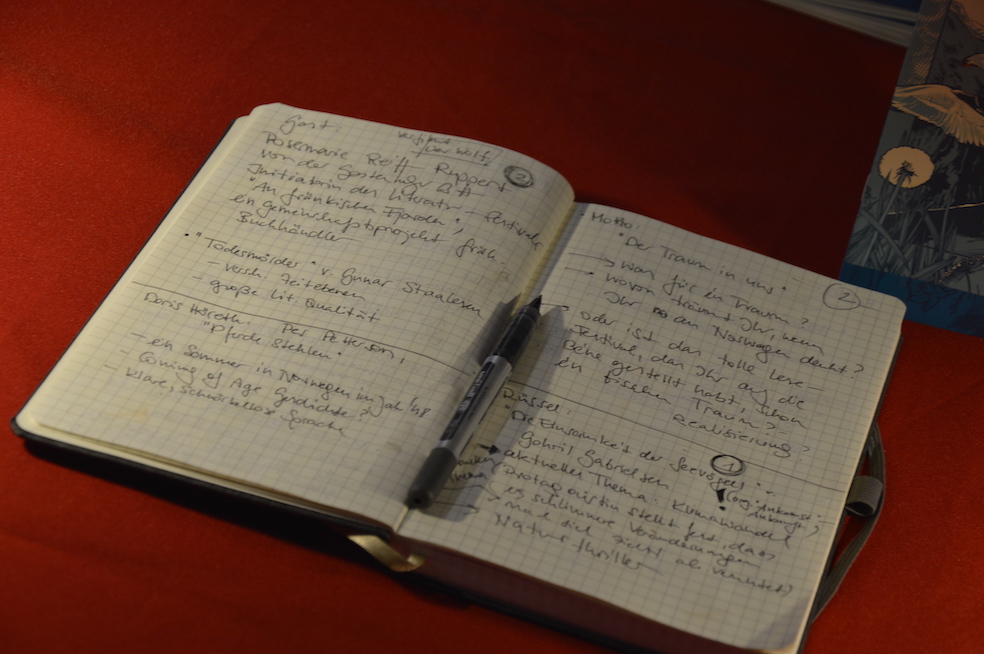 Gast:
der Wolf
2
Rosemarie Reiff-Ruppert
von der Gostenhofer
Initiatorin des Literatur-Festivals
"An fränkischen Fjorden",
ein Gemeinschaftsprojekt fränk.
Buchhändler
• "Todesmörder" v. Gunar Staalesen
– versch. Zeitebenen
– große lit. Qualität
Doris Hereth: Per Petterson,
"Pferde stehlen"
– ein Sommer in Norwegen im Jahr '48
– Coming of Age Geschichte?
– klare, schnörkellose Sprache
Motto:
"Der Traum in uns"
2
→ was für ein Traum?
→ wovon träumt Ihr, wenn
Ihr an Norwegen denkt?
→ oder ist das tolle Lese-
Festival, das Ihr auf die
Beine gestellt habt, schon
ein bisschen Traum?
Realisierung?
Rüssel:
"Die Einsamkeit der Seevögel" v.
Gøhril Gabrielsen
1
(org. Ankomst =
Ankunft)
→ aktuelles Thema: Klimawandel
(Protagonistin stellt fest, dass
es schlimmere Veränderungen
nach sich zieht als vermutet)
Naturthriller